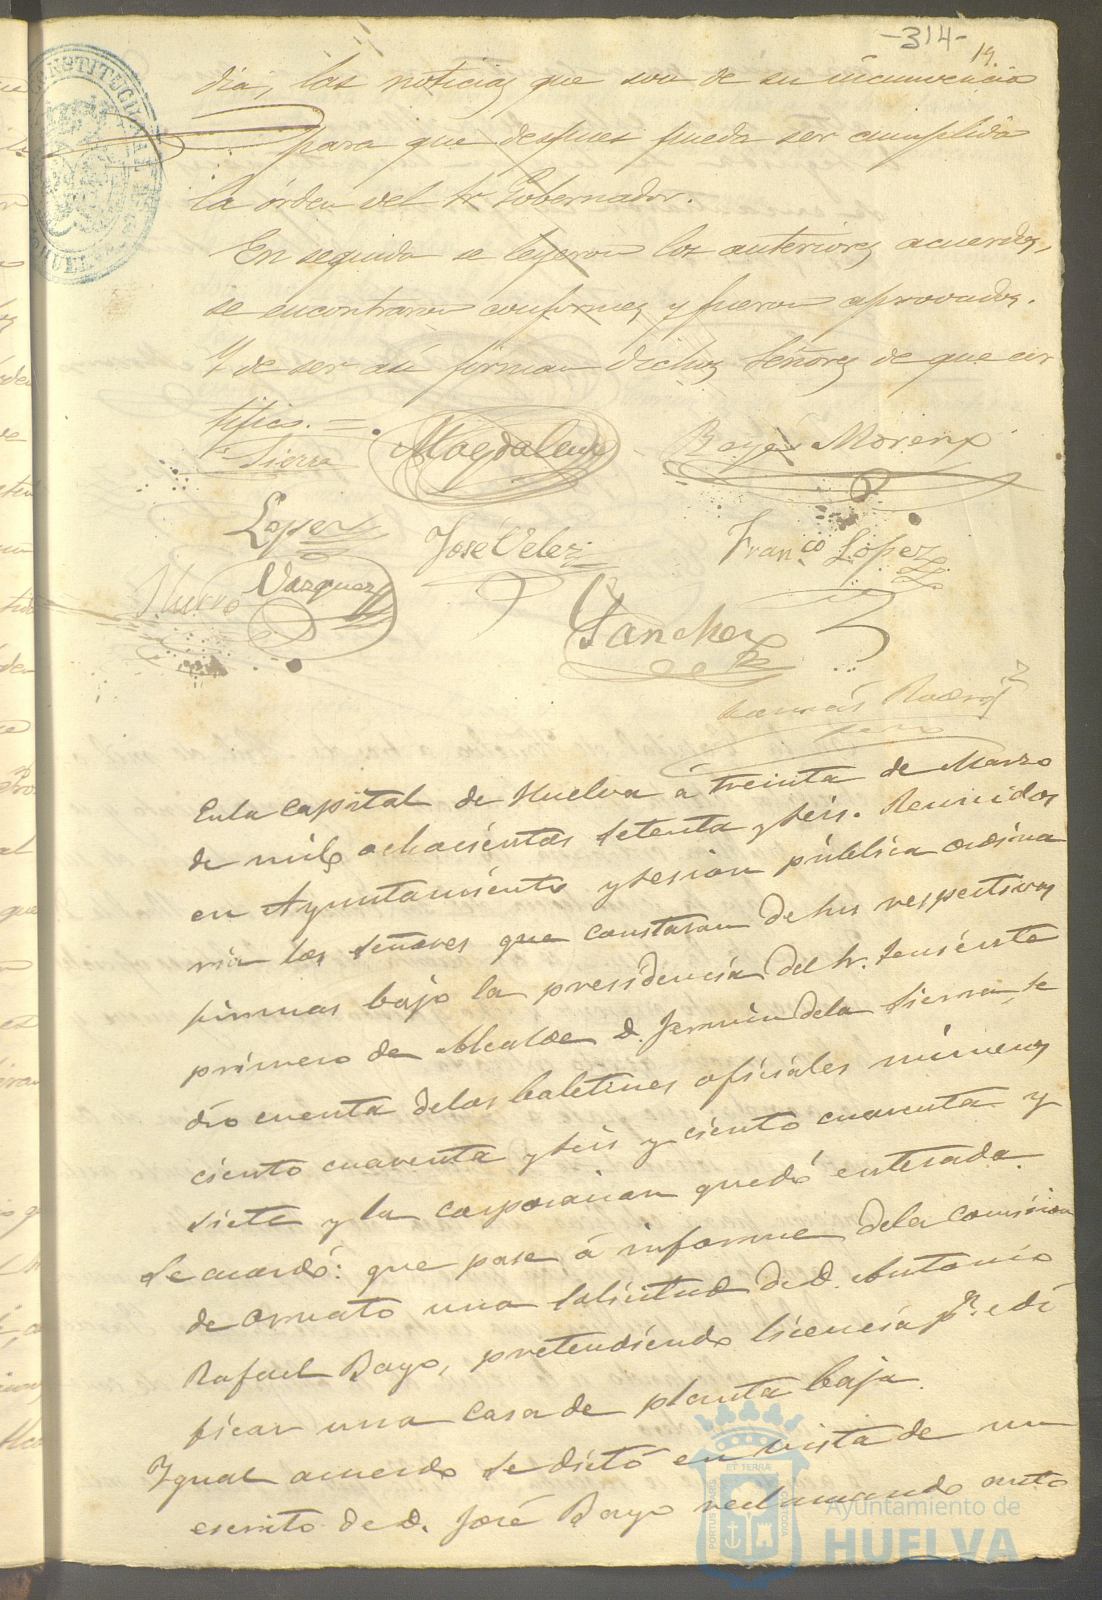 -314-
19.
dia, las noticias que son de su incumvencia
para que despues pueda ser cumplida
la órden del Sr Gobernador.
En seguida se leyeron los anteriores acuerdos,
se encontraron conformes y fueron aprovados.
Y de ser así firman dichos Señores de que cer
tifico. =
Sierra Magdalena Reyes Moreno
Lopez José Velez Franco. Lopez
Vazquez
Sanchez
Tomás Rodrig
En la Capital de Huelva á treinta de Marzo
de mil ochocientos setenta y seis. Reunidos
en Ayuntamiento y sesion pública ordina
ria los Señores que constaran de sus respectivas
firmas bajo la presidencia del Sr. Teniente
primero de Alcalde D. Fermin de la Sierra, se
dió cuenta de los boletines oficiales números
ciento cuarenta y seis y ciento cuarenta y
siete y la corporacion quedó enterada.
Se acordó: que pase á informe de la Comision
de Ornato una solicitud de D. Antonio
Rafael Bayo, pretendiendo licencia pa. edi
ficar una casa de planta baja.
Igual acuerdo se dictó en vista de un
escrito de D. José Bayo reclamando ante
PORTUS MARIS ET TERRÆ CUSTODIA
Ayuntamiento de
HUELVA